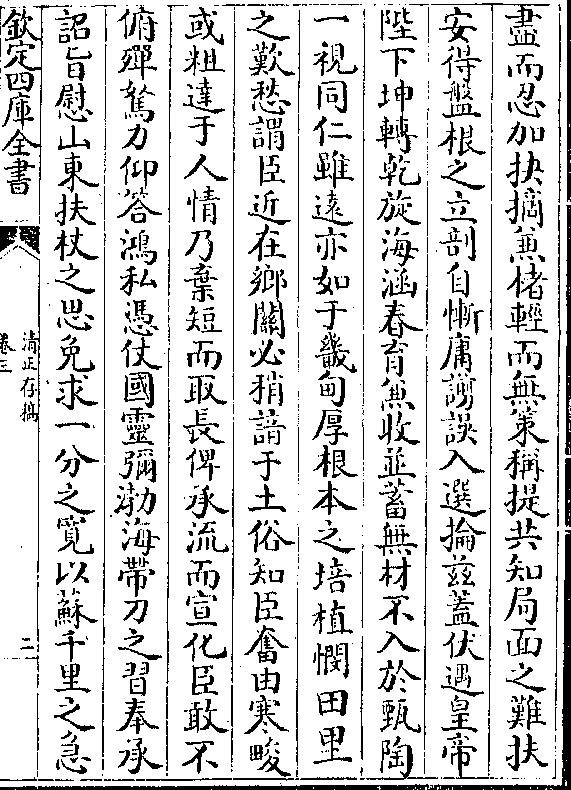 盡而忍加抉摘無楮輕而無策稱提共知局面之難扶
安得盤根之立剖自慚庸謭誤入選掄茲蓋伏遇皇帝
陛下坤轉乾旋海涵春育兼收並蓄無材不入於甄陶
一視同仁雖遠亦如于畿甸厚根本之培植憫田里
之歎愁謂臣近在鄉關必稍諳于土俗知臣奮由寒畯
或粗達于人情乃棄短而取長俾承流而宣化臣敢不
俯殫駑力仰答鴻私憑仗國靈彌渤海帶刀之習奉承
詔旨慰山東扶杖之思免求一分之寛以蘇千里之急
欽定四庫全書
清正存稿
卷三
二